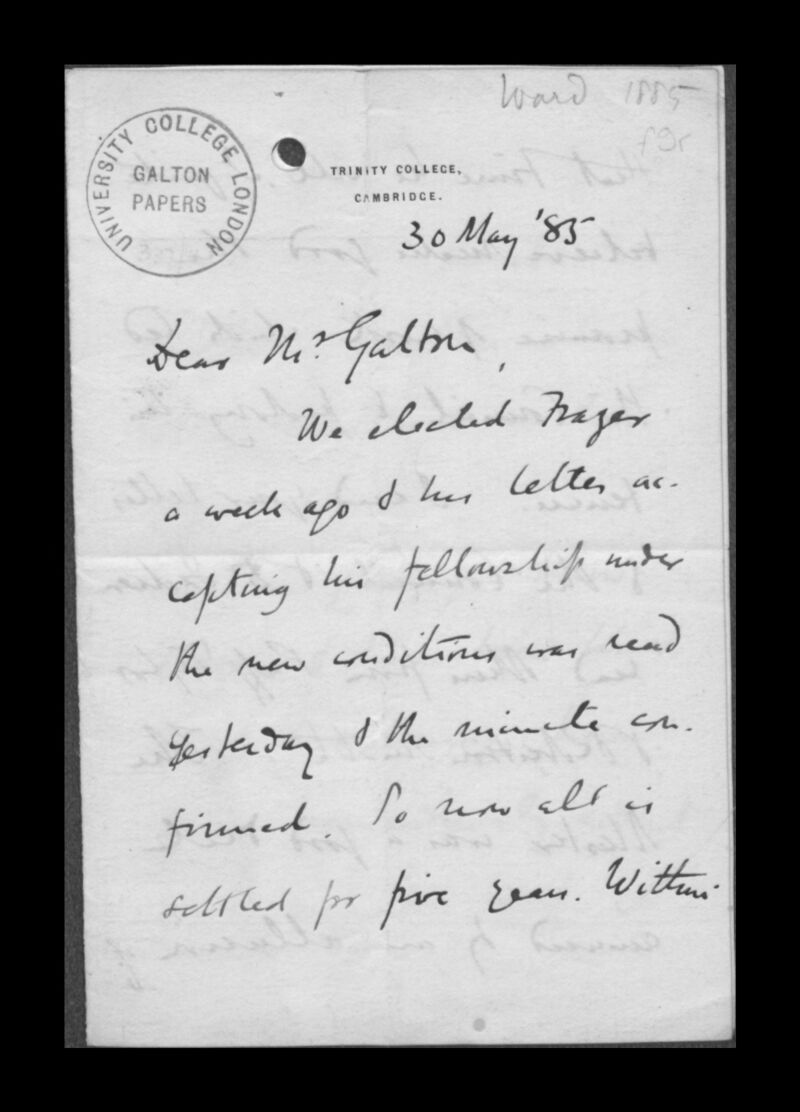 Ward 1885
f9r
UNIVERSITY COLLEGE LONDON
GALTON
PAPERS
TRINITY COLLEGE,
CAMBRIDGE.
30 May '85
Dear Mr Galton,
We elected Frazer
a week ago & his letter ac-
cepting his fellowship under
the new conditions was read
yesterday & the minute con-
firmed. So now all is
settled for five years. Within